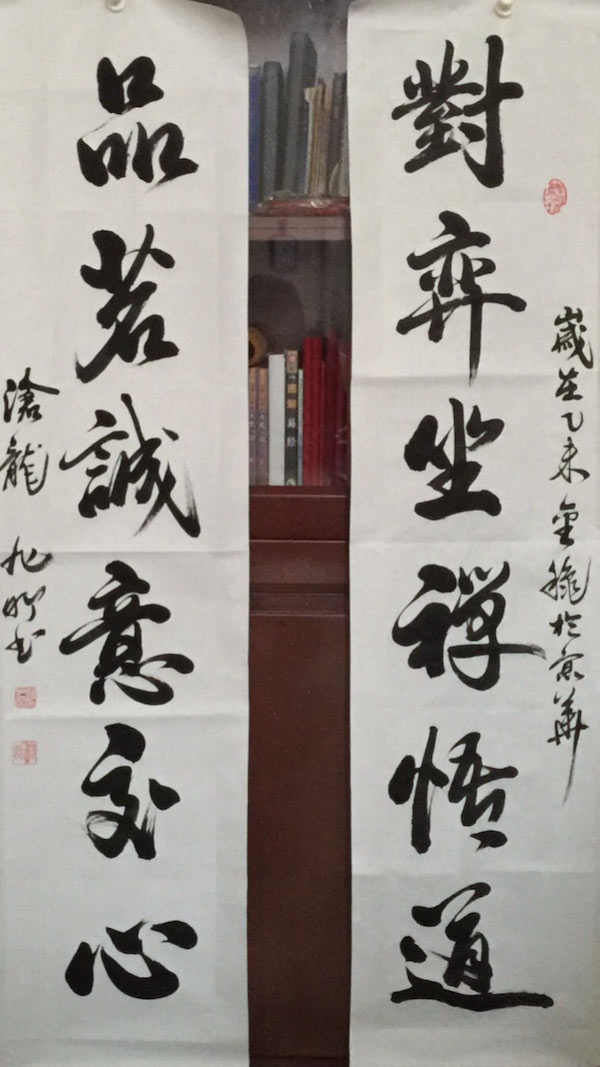 對弈坐禪悟道
歲在乙未金秋於京華
品茗誠意交心
滄龍
書
易經